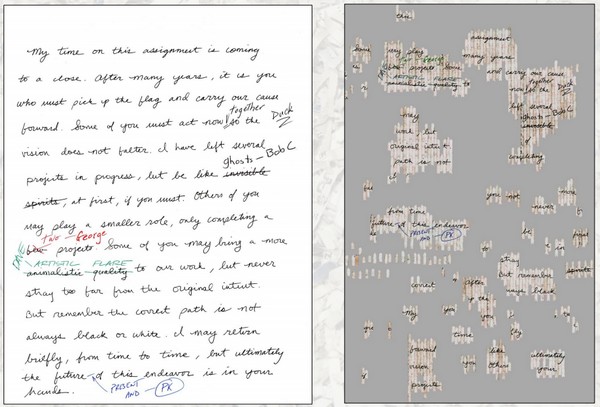 My time on this assignment is coming
to a close. After many years, it is you
who must pick up the flag and carry our cause
together Duck
forward. Some of you must act now so the
vision does not falter. I have left several
ghosts - Bob C
projects in progress, but be like invisible
spirits, at first, if you must. Others of you
may play a smaller role, only completing a
Two - George
few projects. Some of you may bring a more
ME
ARTISTIC FLARE
animalistic quality to our work, but never
stray too far from the original intent.
But remember the correct path is not
always black or white. I may return
briefly, from time to time, but ultimately
the future of this endeavor is in your
hands.
PRESENT
AND - PK
this
assignment
many years
and carry our cause
together
now so the Duck
left several
ghosts - Bob C
invisible
completing
may play
ARTISTIC FLARE
animalistic quality to
may
work, but
original intent
path is not
far
if you
never
more
from time
future of this endeavor
PRESENT
AND - PK
be
in
stray
But remember
always black
spirits
correct
After
up the
of
My
you
time
flag
forward
vision
projects
like
you
Others
ultimately
your